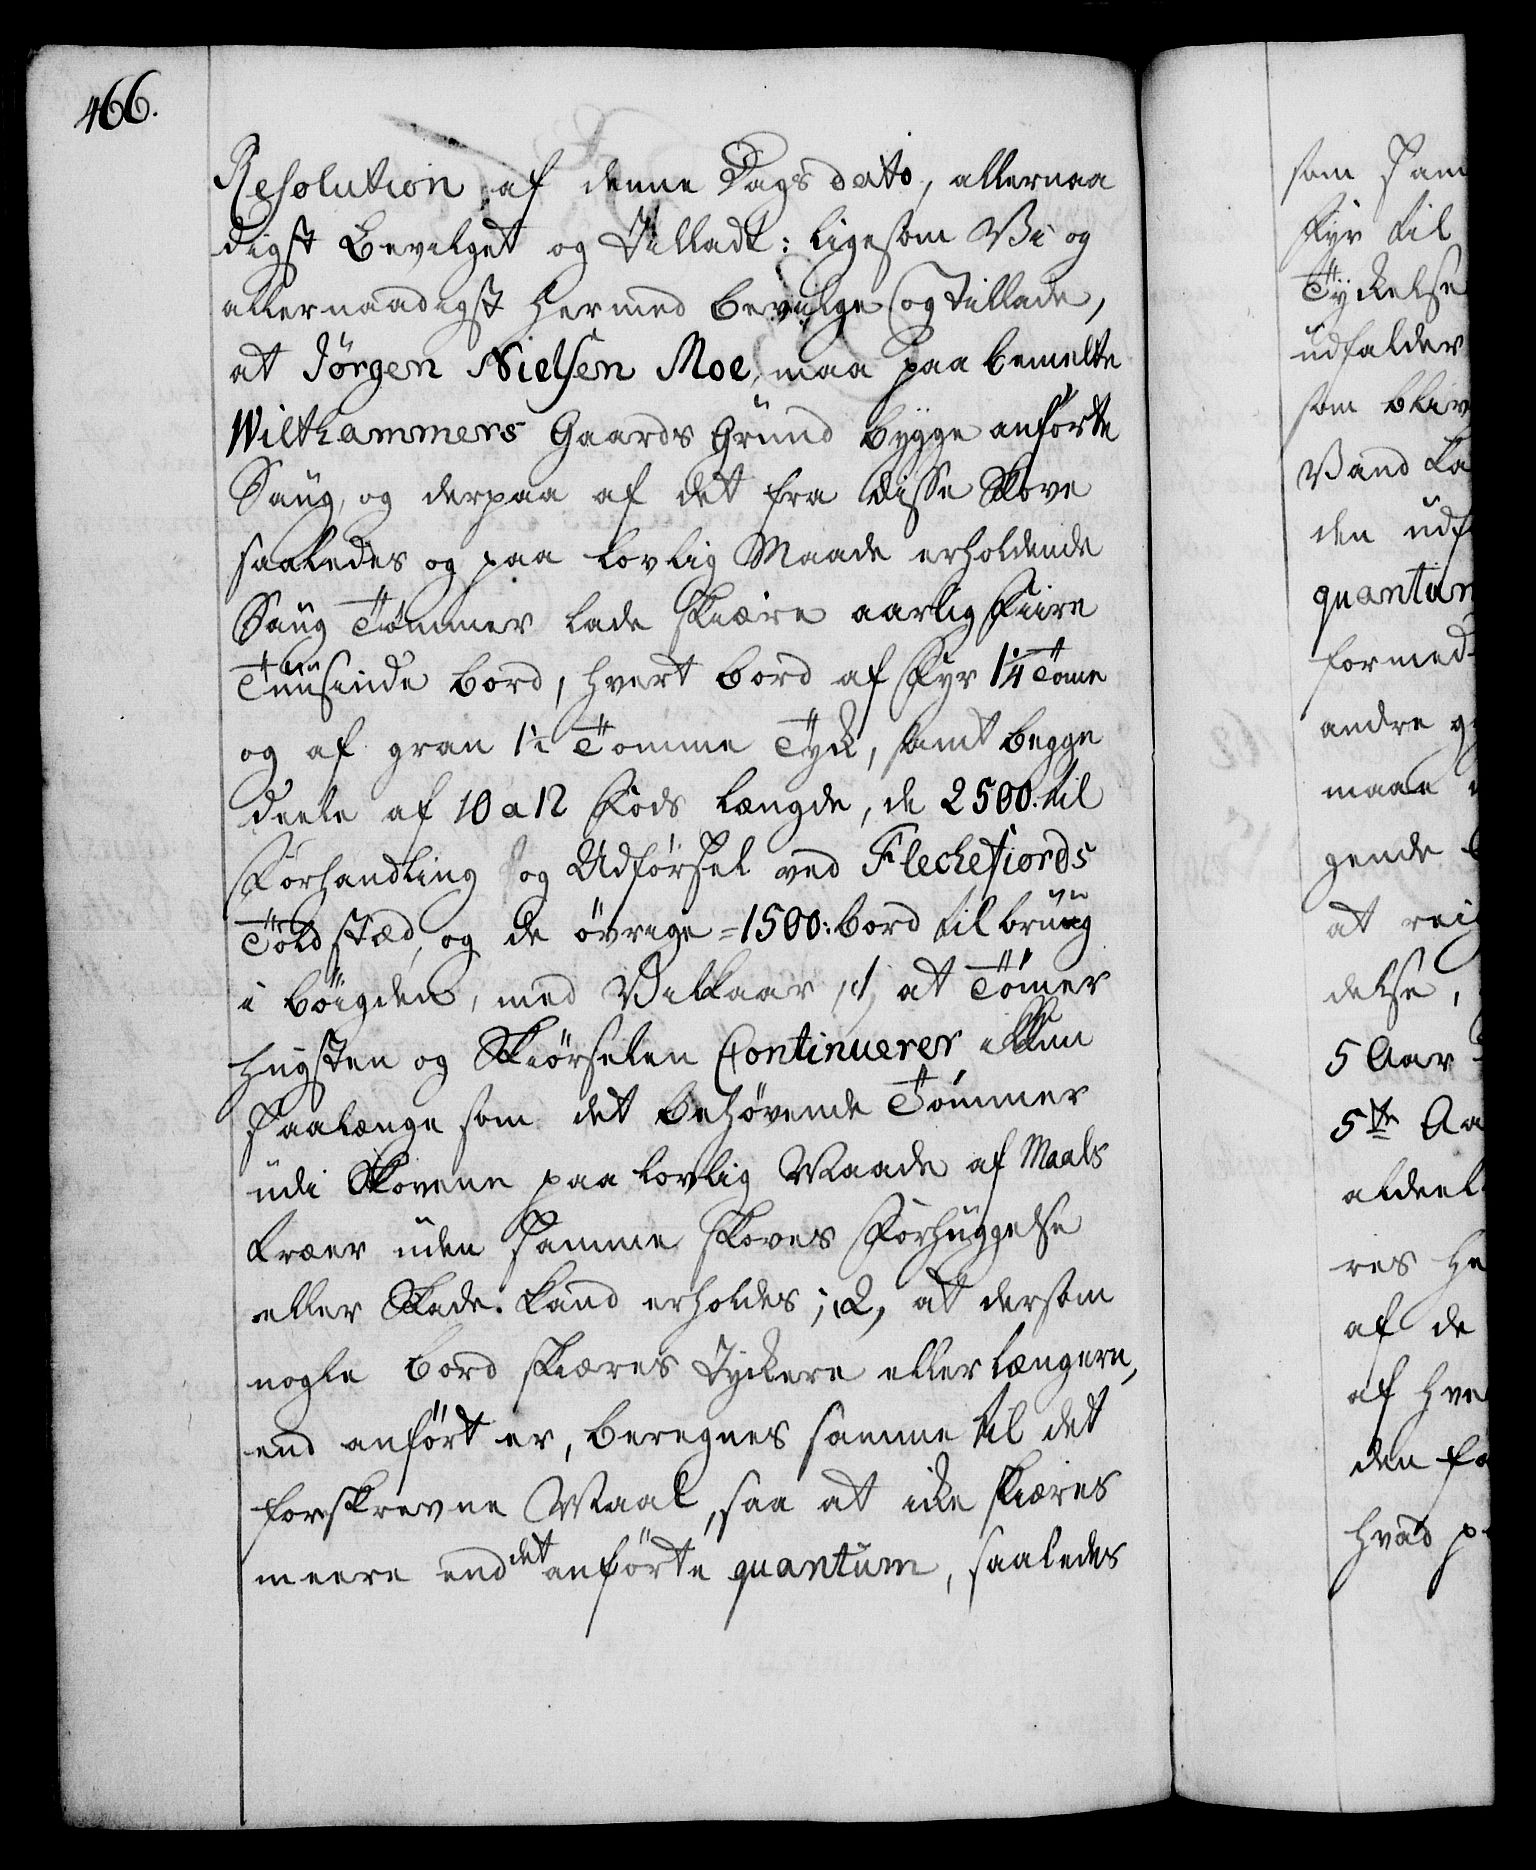 466.
Resolution af denne Dags dato, allernaa
digst bevilget og Tilladt: ligesom Vi og
allernaadigst hermed bevilge og tillade,
at Jörgen Nielsen Moe, maa paa bemelte
Wilthammers Gaards Grund bygge anförte
Saug, og derpaa af det fra disse Skove
saaledes og paa lovlig Maade erholdende
Saug Tömmer lade skiære aarlig Fiire
Tuusinde bord, hvert bord af Fyr 1¼ Tome
og af gran 1½ Tomme Tyck, samt begge
deele af 10 a 12 Fods længde, de 2500. til
Forhandling og Udförsel ved Flechefiords
Toldstæd, og de övrige = 1500: bord til bruug
i böigden, med Vilkaar ,1, at Tömer
hugsten og Skiörselen Continuerer ikkun
saalænge som det behövende Tömmer
udi Skovene paa lovlig Maade af Maals
træer uden samme skoves Forhuggelse
eller Skade. kand erholdes; ,2, at dersom
nogle bord skiæres Tyckere eller længere,
end anfört er, beregnes samme til det
forskrevne Maal, saa at icke skiæres
meere end det anförte quantum, saaledes
som sam
Fyr til
Tyckelse
udfalder
som bliv
Vand
den udf
quantum
formed
andre
maae
gende
at
delse,
5 Aar
5te Aa
aldeel
res
af de
af hve
den
hvad